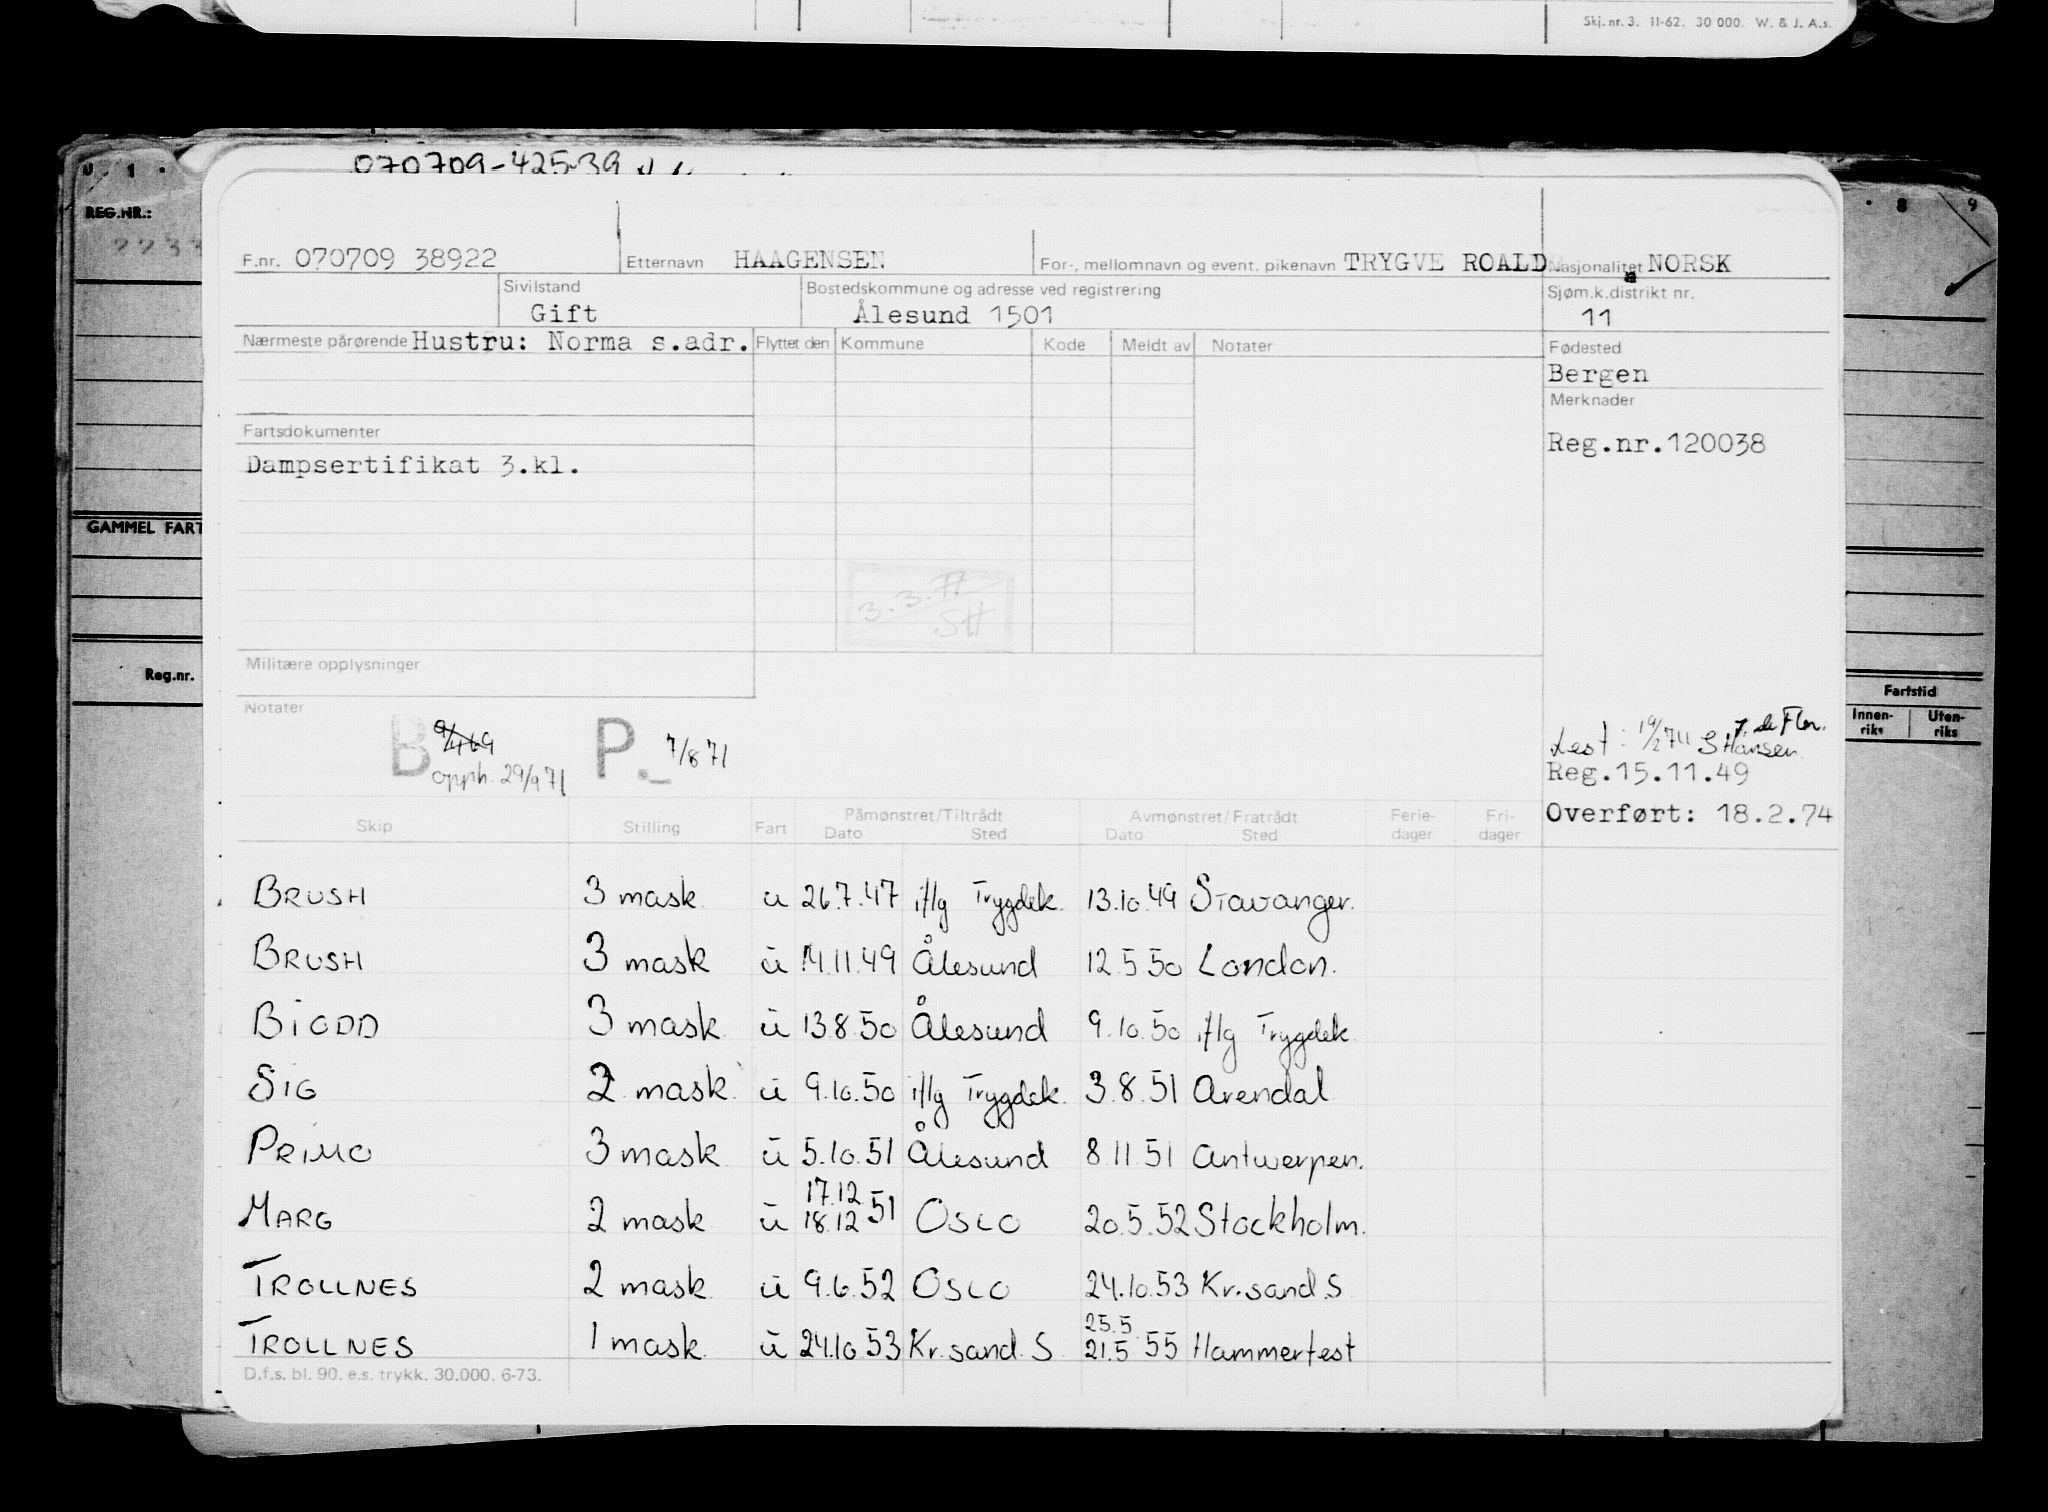 Skj. nr. 3. 11-62. 30 000. W. & J. A.s.
070709-42539
REG.NR.:
8 9
F.nr. 070709 38922 Etternavn HAAGENSEN For-, mellomnavn og event. pikenavn TRYGVE ROALD Nasjonalitet NORSK
Sivilstand Bostedskommune og adresse ved registrering Sjøm.k.distrikt nr.
Gift Ålesund 1501 11
Nærmeste pårørende Hustru: Norma s.adr. Flyttet den Kommune Kode Meldt av Notater Fødested
Bergen
Merknader
Fartsdokumenter Reg.nr.120038
Dampsertifikat 3.kl.
GAMMEL FART
3.3.77
SH
Militære opplysninger
Reg.nr.
Fartstid
Innen-riks Uten-riks
Notater
B 9/4 69 P. 7/8 71
opph. 29/9 71
Lest: 19/2 74 S Hansen
Reg.15.11.49
Overført: 18.2.74
Skip Stilling Fart Påmønstret/Tiltrådt Dato Sted Avmønstret/Fratrådt Dato Sted Ferie-dager Fri-dager
BRUSH 3 mask. u 26.7.47 iflg Trygdek. 13.10.49 Stavanger.
BRUSH 3 mask u 14.11.49 Ålesund 12.5.50 London.
BIODD 3 mask. u 13.8.50 Ålesund 9.10.50 iflg Trygdek.
SIG 2 mask. u 9.10.50 iflg Trygdek. 3.8.51 Arendal
PRIMO 3 mask u 5.10.51 Ålesund 8.11.51 Antwerpen.
MARG 2 mask u 17.12 18.12 51 OSLO 20.5.52 Stockholm.
TROLLNES 2 mask. u 9.6.52 OSLO 24.10.53 Kr.sand.S
TROLLNES 1 mask. u 24.10.53 Kr.sand.S 25.5 21.5 55 Hammerfest
D.f.s. bl. 90. e.s. trykk. 30.000. 6-73.